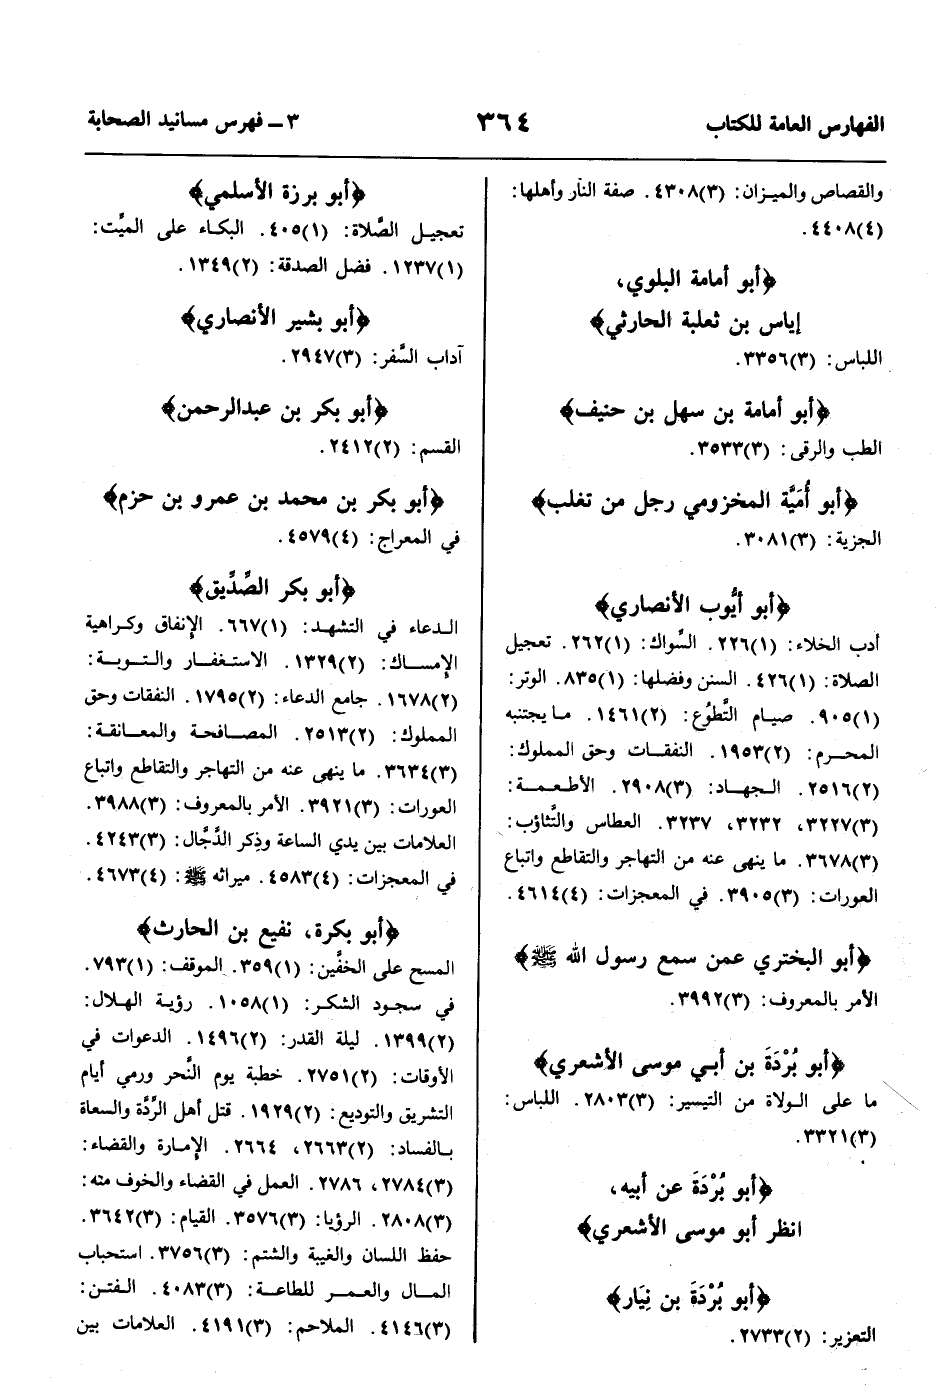 الفهارس العامة للكتاب ٣٦٤ ٣ ــ فهرس مسانيد الصحابة
والقصاص والميزان: (٣)٤٣٠٨. صفة النار وأهلها:
(٤)٤٤٠٨.
﴿أبو أمامة البلوي،
إياس بن ثعلبة الحارثي﴾
اللباس: (٣)٣٣٥٦.
﴿أبو أمامة بن سهل بن حنيف﴾
الطب والرقى: (٣)٣٥٣٣.
﴿أبو أُمَيَّة المخزومي رجل من تغلب﴾
الجزية: (٣)٣٠٨١.
﴿أبو أيُّوب الأنصاري﴾
أدب الخلاء: (١)٢٢٦. السِّواك: (١)٢٦٢. تعجيل
الصلاة: (١)٤٢٦. السنن وفضلها: (١)٨٣٥. الوتر:
(١)٩٠٥. صيام التَّطوُّع: (٢)١٤٦١. ما يجتنبه
المحرم: (٢)١٩٥٣. النفقات وحق المملوك:
(٢)٢٥١٦. الجهاد: (٣)٢٩٠٨. الأطعمة:
(٣)٣٢٢٧، ٣٢٣٢، ٣٢٣٧. العطاس والتَّثاؤب:
(٣)٣٦٧٨. ما ينهى عنه من التهاجر والتقاطع واتباع
العورات: (٣)٣٩٠٥. في المعجزات: (٤)٤٦١٤.
﴿أبو البختري عمن سمع رسول الله ﷺ﴾
الأمر بالمعروف: (٣)٣٩٩٢.
﴿أبو بُرْدَةَ بن أبي موسى الأشعري﴾
ما على الولاة من التيسير: (٣)٢٨٠٣. اللباس:
(٣)٣٣٢١.
﴿أبو بُرْدَةَ عن أبيه،
انظر أبو موسى الأشعري﴾
﴿أبو بُرْدَةَ بن نِيَار﴾
التعزير: (٢)٢٧٣٣.
﴿أبو برزة الأسلمي﴾
تعجيل الصَّلاة: (١)٤٠٥. البكاء على الميَّت:
(١)١٢٣٧. فضل الصدقة: (٢)١٣٤٩.
﴿أبو بشير الأنصاري﴾
آداب السَّفر: (٣)٢٩٤٧.
﴿أبو بكر بن عبدالرحمن﴾
القسم: (٢)٢٤١٢.
﴿أبو بكر بن محمد بن عمرو بن حزم﴾
في المعراج: (٤)٤٥٧٩.
﴿أبو بكر الصِّدِّيق﴾
الدعاء في التشهد: (١)٦٦٧. الإنفاق وكراهية
الإمساك: (٢)١٣٢٩. الاستغفار والتوبة:
(٢)١٦٧٨. جامع الدعاء: (٢)١٧٩٥. النفقات وحق
المملوك: (٢)٢٥١٣. المصافحة والمعانقة:
(٣)٣٦٣٤. ما ينهى عنه من التهاجر والتقاطع واتباع
العورات: (٣)٣٩٢١. الأمر بالمعروف: (٣)٣٩٨٨.
العلامات بين يدي الساعة وذِكر الدَّجَّال: (٣)٤٢٤٣.
في المعجزات: (٤)٤٥٨٣. ميراثه ﷺ: (٤)٤٦٧٣.
﴿أبو بكرة، نفيع بن الحارث﴾
المسح على الخفَّين: (١)٣٥٩. الموقف: (١)٧٩٣.
في سجود الشكر: (١)١٠٥٨. رؤية الهلال:
(٢)١٣٩٩. ليلة القدر: (٢)١٤٩٦. الدعوات في
الأوقات: (٢)٢٧٥١. خطبة يوم النَّحر ورمي أيام
التشريق والتوديع: (٢)١٩٢٩. قتل أهل الرِّدَّة والسعاة
بالفساد: (٢)٢٦٦٣، ٢٦٦٤. الإمارة والقضاء:
(٣)٢٧٨٤، ٢٧٨٦. العمل في القضاء والخوف منه:
(٣)٢٨٠٨. الرؤيا: (٣)٣٥٧٦. القيام: (٣)٣٦٤٢.
حفظ اللسان والغيبة والشتم: (٣)٣٧٥٦. استحباب
المال والعمر للطاعة: (٣)٤٠٨٣. الفتن:
(٣)٤١٤٦. الملاحم: (٣)٤١٩١. العلامات بين